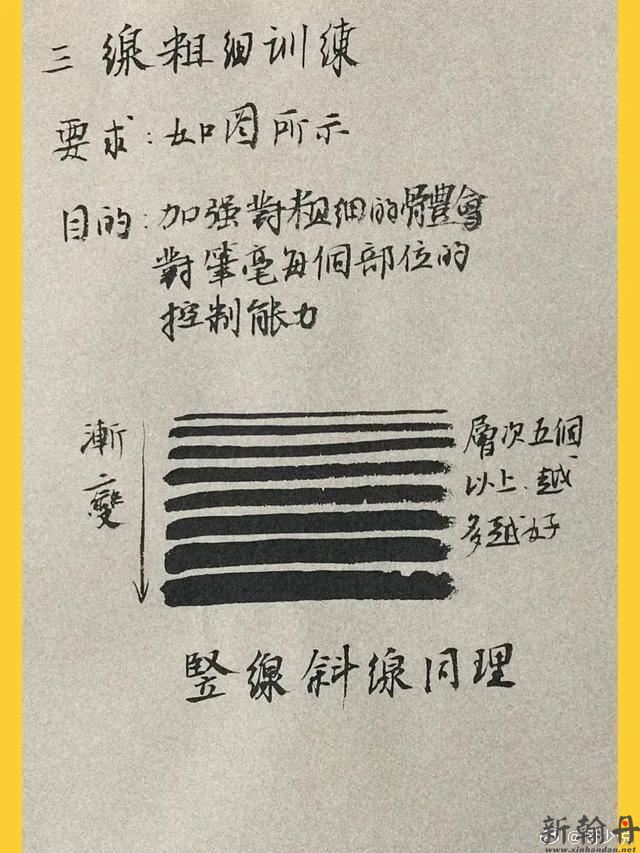 三 線粗细训練
要求：如图所示
目的：加强對粗细的體會
對筆毫每個部位的
控制能力
漸變
層次五個
以上．越
多越好
竪線斜線同理
新翰丹
www.xinhandan.net